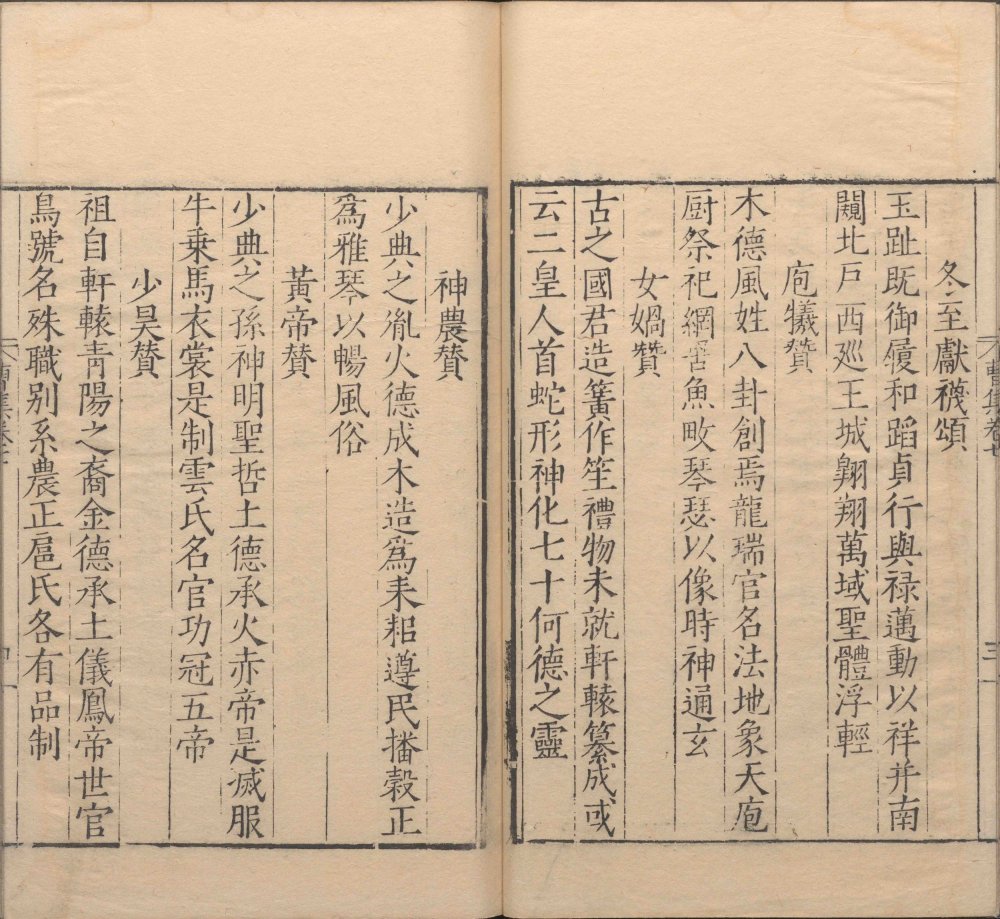 冬至獻襪頌
玉趾既御履和蹈貞行與禄邁動以祥并南
闚北戸西廵王城翺翔萬域聖體浮輕
庖犧贊
木德風姓八卦創焉龍瑞官名法地象天庖
厨祭祀網罟魚畋琴瑟以像時神通玄
女媧贊
古之國君造簧作笙禮物未就軒轅纂成或
云二皇人首蛇形神化七十何德之靈
神農贊
少典之胤火德成木造爲耒耜遵民播穀正
爲雅琴以暢風俗
黃帝贊
少典之孫神明聖哲土德承火赤帝是滅服
牛乗馬衣裳是制雲氏名官功冠五帝
少昊贊
祖自軒轅青陽之裔金德承土儀鳳帝世官
鳥號名殊職别系農正扈氏各有品制